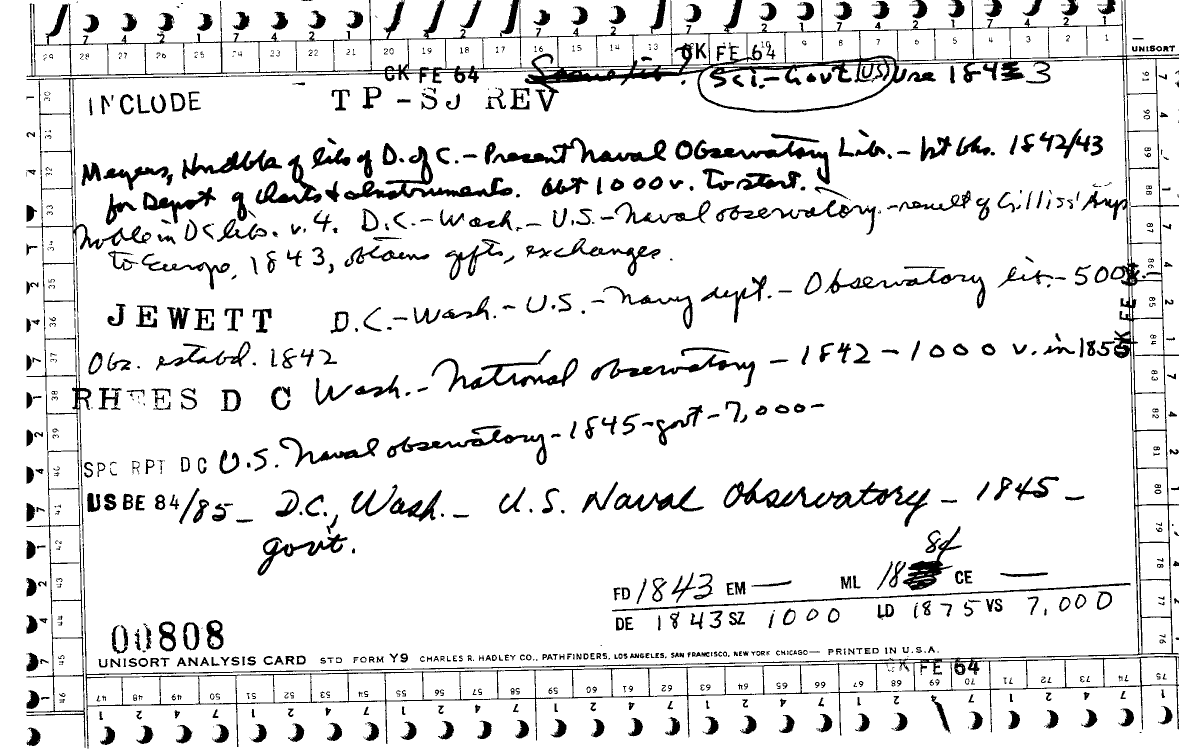 29 28 27 26 25 24 23 22 21 20 19 18 17 16 15 14 13 12 9 8 7 6 5 4 3 2 1
UNISORT
CK FE 64
CK FE 64
Sci.-Govt (US) Use 1843
INCLUDE TP-SJ REV
Meyers, Hndbk of libs of D. of C. - Present Naval Observatory Lib. - 1st bks. 1842/43
for Depot of Charts & Instruments. Abt 1000 v. to start.
Noble in DC libs. v. 4. D.C.-Wash.-U.S.-Naval observatory.-result of Gilliss'
to Europe, 1843, obtains gifts, exchanges.
JEWETT D.C.-Wash.-U.S.-Navy dept.-Observatory lib.-500
Obs. estabd. 1842
CK FE 64
RHEES D C Wash.-National observatory-1842-1000 v. in 1850
SPC RPT DC U.S. Naval observatory-1845-govt-7,000-
US BE 84/85- D.C., Wash.- U.S. Naval Observatory-1845-
govt.
84
FD 1843 EM — ML 18 CE —
DE 1843 SZ 1000 LD 1875 VS 7,000
00808
UNISORT ANALYSIS CARD STD FORM Y9 CHARLES R. HADLEY CO., PATHFINDERS, LOS ANGELES, SAN FRANCISCO, NEW YORK CHICAGO— PRINTED IN U.S.A.
CK FE 64
47 48 49 50 51 52 53 54 55 56 57 58 59 60 61 62 63 64 65 66 67 68 69 70 71 72 73 74 75